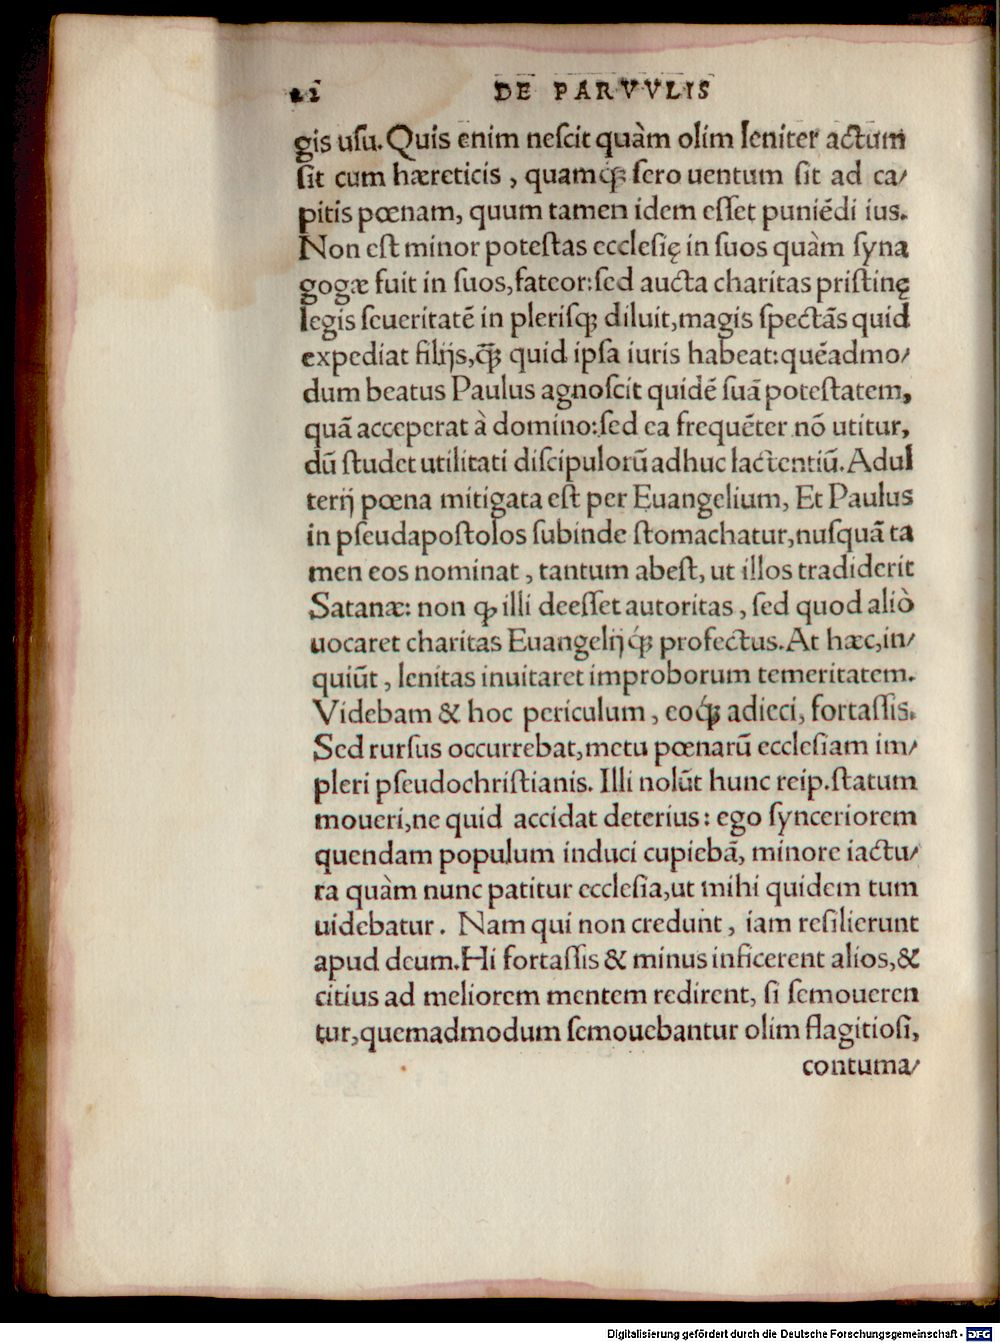 DE PARVVLIS
gis uſu. Quis enim neſcit quàm olim leniter actum
ſit cum hæreticis, quamq́ꝫ ſero uentum ſit ad ca/
pitis pœnam, quum tamen idem eſſet puniẽdi ius.
Non eſt minor poteſtas eccleſię in ſuos quàm ſyna
gogæ fuit in ſuos, fateor: ſed aucta charitas priſtinę
legis ſeueritatẽ in pleriſqꝫ diluit, magis ſpectãs quid
expediat filijs, q̃ꝫ quid ipſa iuris habeat: quẽadmo/
dum beatus Paulus agnoſcit quidẽ ſuã poteſtatem,
quã acceperat à domino: ſed ea frequẽter nõ utitur,
dũ ſtudet utilitati diſcipulorũ adhuc lactentiũ. Adul
terij pœna mitigata eſt per Euangelium, Et Paulus
in pſeudapoſtolos ſubinde ſtomachatur, nuſquã ta
men eos nominat, tantum abeſt, ut illos tradiderit
Satanæ: non ꝙ illi deeſſet autoritas, ſed quod aliò
uocaret charitas Euangelijq́ꝫ profectus. At hæc, in/
quiũt, lenitas inuitaret improborum temeritatem.
Videbam & hoc periculum, eoq́ꝫ adieci, fortaſſis.
Sed rurſus occurrebat, metu pœnarũ eccleſiam im/
pleri pſeudochriſtianis. Illi nolũt hunc reip. ſtatum
moueri, ne quid accidat deterius: ego ſynceriorem
quendam populum induci cupiebã, minore iactu/
ra quàm nunc patitur eccleſia, ut mihi quidem tum
uidebatur. Nam qui non credunt, iam reſilierunt
apud deum. Hi fortaſſis & minus inficerent alios, &
citius ad meliorem mentem redirent, ſi ſemoueren
tur, quemadmodum ſemouebantur olim flagitioſi,
contuma/
Digitalisierung gefördert durch die Deutsche Forschungsgemeinschaft - DFG